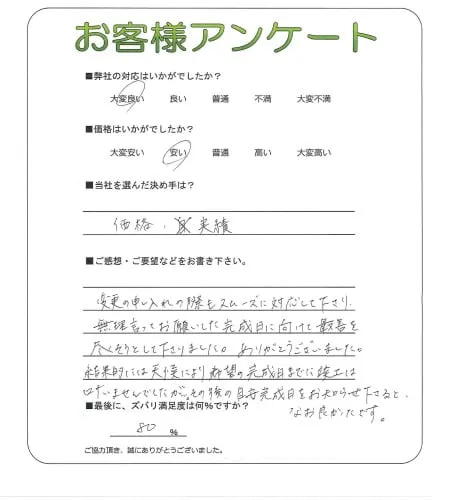 お客様アンケート
■弊社の対応はいかがでしたか？
大変良い 良い 普通 不満 大変不満
■価格はいかがでしたか？
大変安い 安い 普通 高い 大変高い
■当社を選んだ決め手は？
価格・実績
■ご感想・ご要望などをお書き下さい。
変更の申し入れの際もスムーズに対応して下さり、
無理言ってお願いした完成日に向けて最善を
尽くそうとして下さりました。ありがとうございました。
結果的には天候により希望の完成日までに竣工は
できませんでしたが、その後の目安完成日をお知らせ下さると、
なお良かったです。
■最後に、ズバリ満足度は何％ですか？
80 ％
ご協力頂き、誠にありがとうございました。